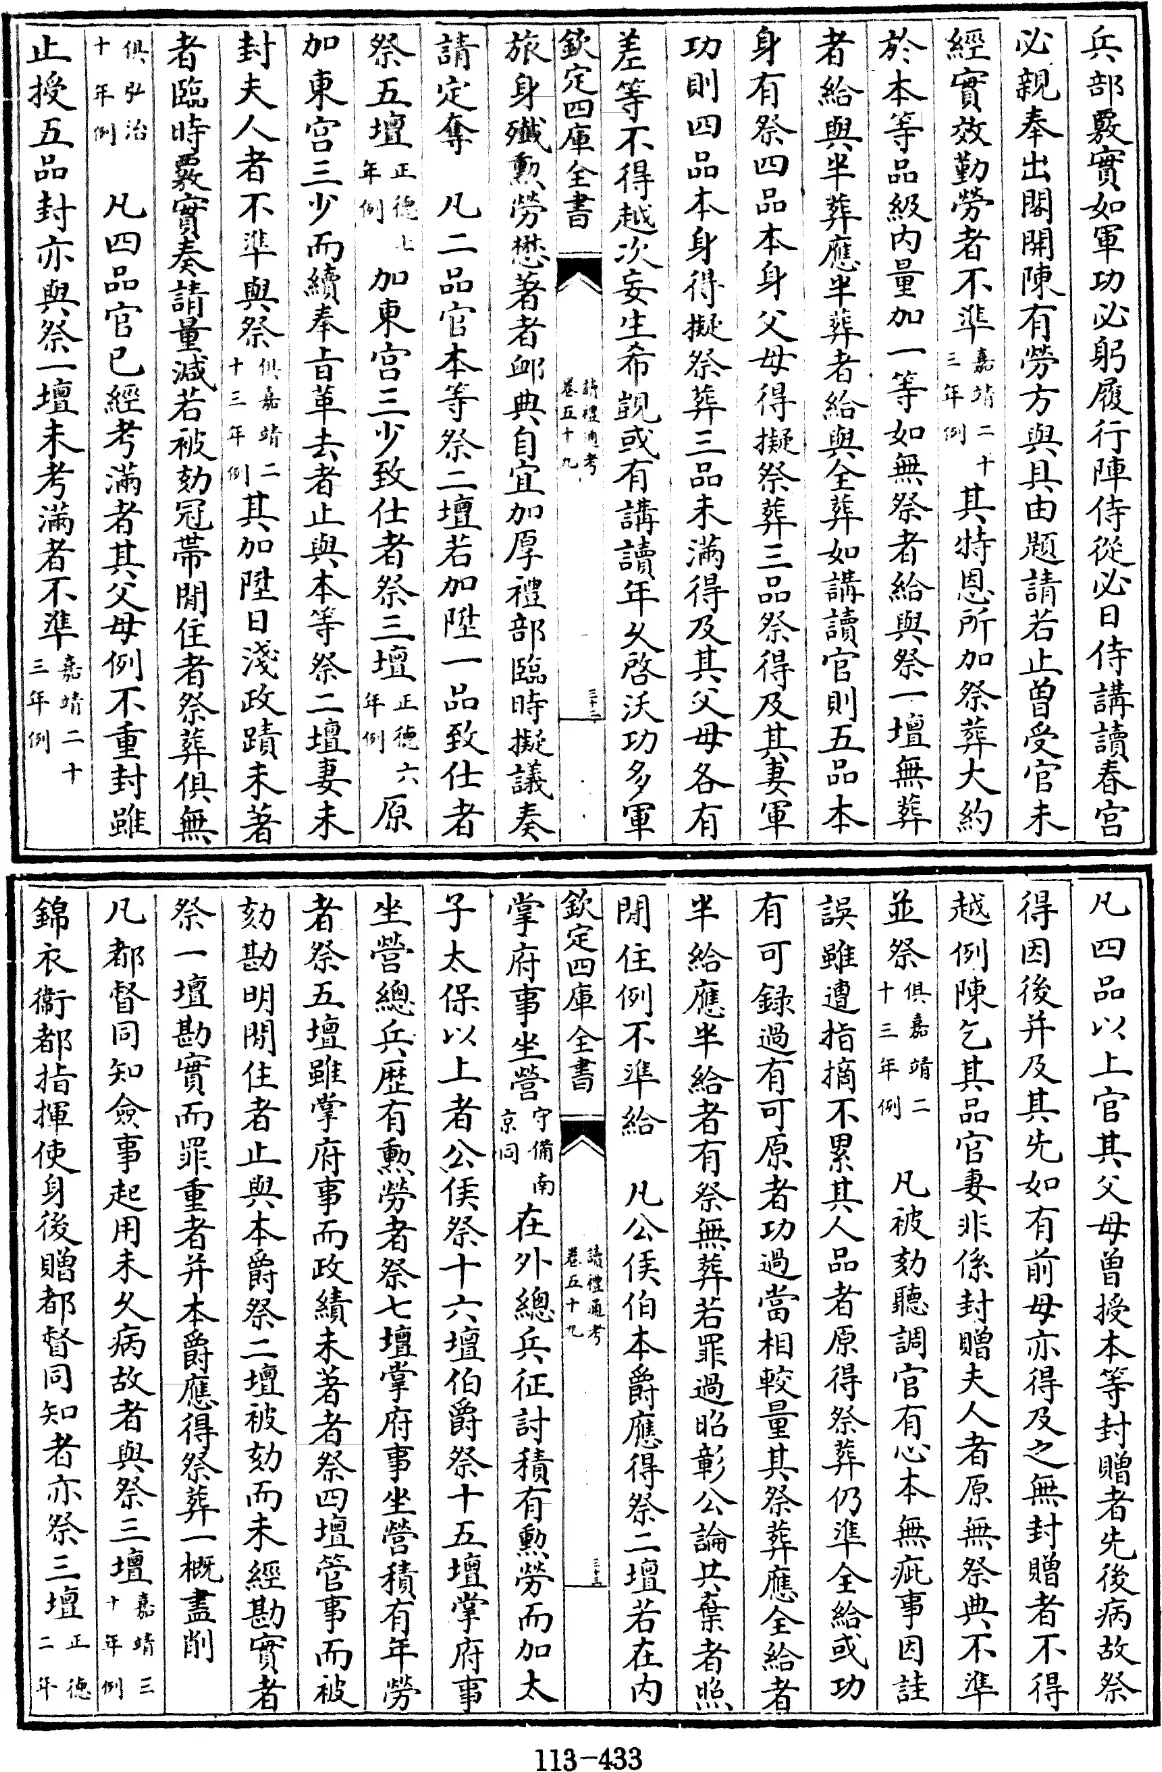 兵部覈實如軍功必躬履行陣侍從必日侍講讀春宮
必親奉出閣開陳有勞方與具由題請若止曾受官未
經實效勤勞者不準嘉靖二十三年例其特恩所加祭葬大約
於本等品級內量加一等如無祭者給與祭一壇無葬
者給與半葬應半葬者給與全葬如講讀官則五品本
身有祭四品本身父母得擬祭葬三品祭得及其妻軍
功則四品本身得擬祭葬三品未滿得及其父母各有
差等不得越次妄生希覬或有講讀年久啓沃功多軍
欽定四庫全書
讀禮通考
卷五十九
三十二
旅身殲勲勞懋著者卹典自宜加厚禮部臨時擬議奏
請定奪 凡二品官本等祭二壇若加陞一品致仕者
祭五壇正德七年例 加東宮三少致仕者祭三壇正德六年例原
加東宮三少而續奉旨革去者止與本等祭二壇妻未
封夫人者不準與祭俱嘉靖二十三年例其加陞日淺政蹟未著
者臨時覈實奏請量減若被劾冠帶閒住者祭葬俱無
俱弘治十年例 凡四品官已經考滿者其父母例不重封雖
止授五品封亦與祭一壇未考滿者不準嘉靖二十三年例
凡四品以上官其父母曾授本等封贈者先後病故祭
得因後并及其先如有前母亦得及之無封贈者不得
越例陳乞其品官妻非係封贈夫人者原無祭典不準
並祭俱嘉靖二十三年例 凡被劾聽調官有心本無疵事因詿
誤雖遭指摘不累其人品者原得祭葬仍準全給或功
有可録過有可原者功過當相較量其祭葬應全給者
半給應半給者有祭無葬若罪過昭彰公論共棄者照
閒住例不準給 凡公侯伯本爵應得祭二壇若在內
欽定四庫全書
讀禮通考
卷五十九
三十三
掌府事坐營守備南京同在外總兵征討積有勲勞而加太
子太保以上者公侯祭十六壇伯爵祭十五壇掌府事
坐營總兵歴有勲勞者祭七壇掌府事坐營積有年勞
者祭五壇雖掌府事而政績未著者祭四壇管事而被
劾勘明閒住者止與本爵祭二壇被劾而未經勘實者
祭一壇勘實而罪重者并本爵應得祭葬一概盡削
凡都督同知僉事起用未久病故者與祭三壇嘉靖三十年例
錦衣衞都指揮使身後贈都督同知者亦祭三壇正德二年
113-433